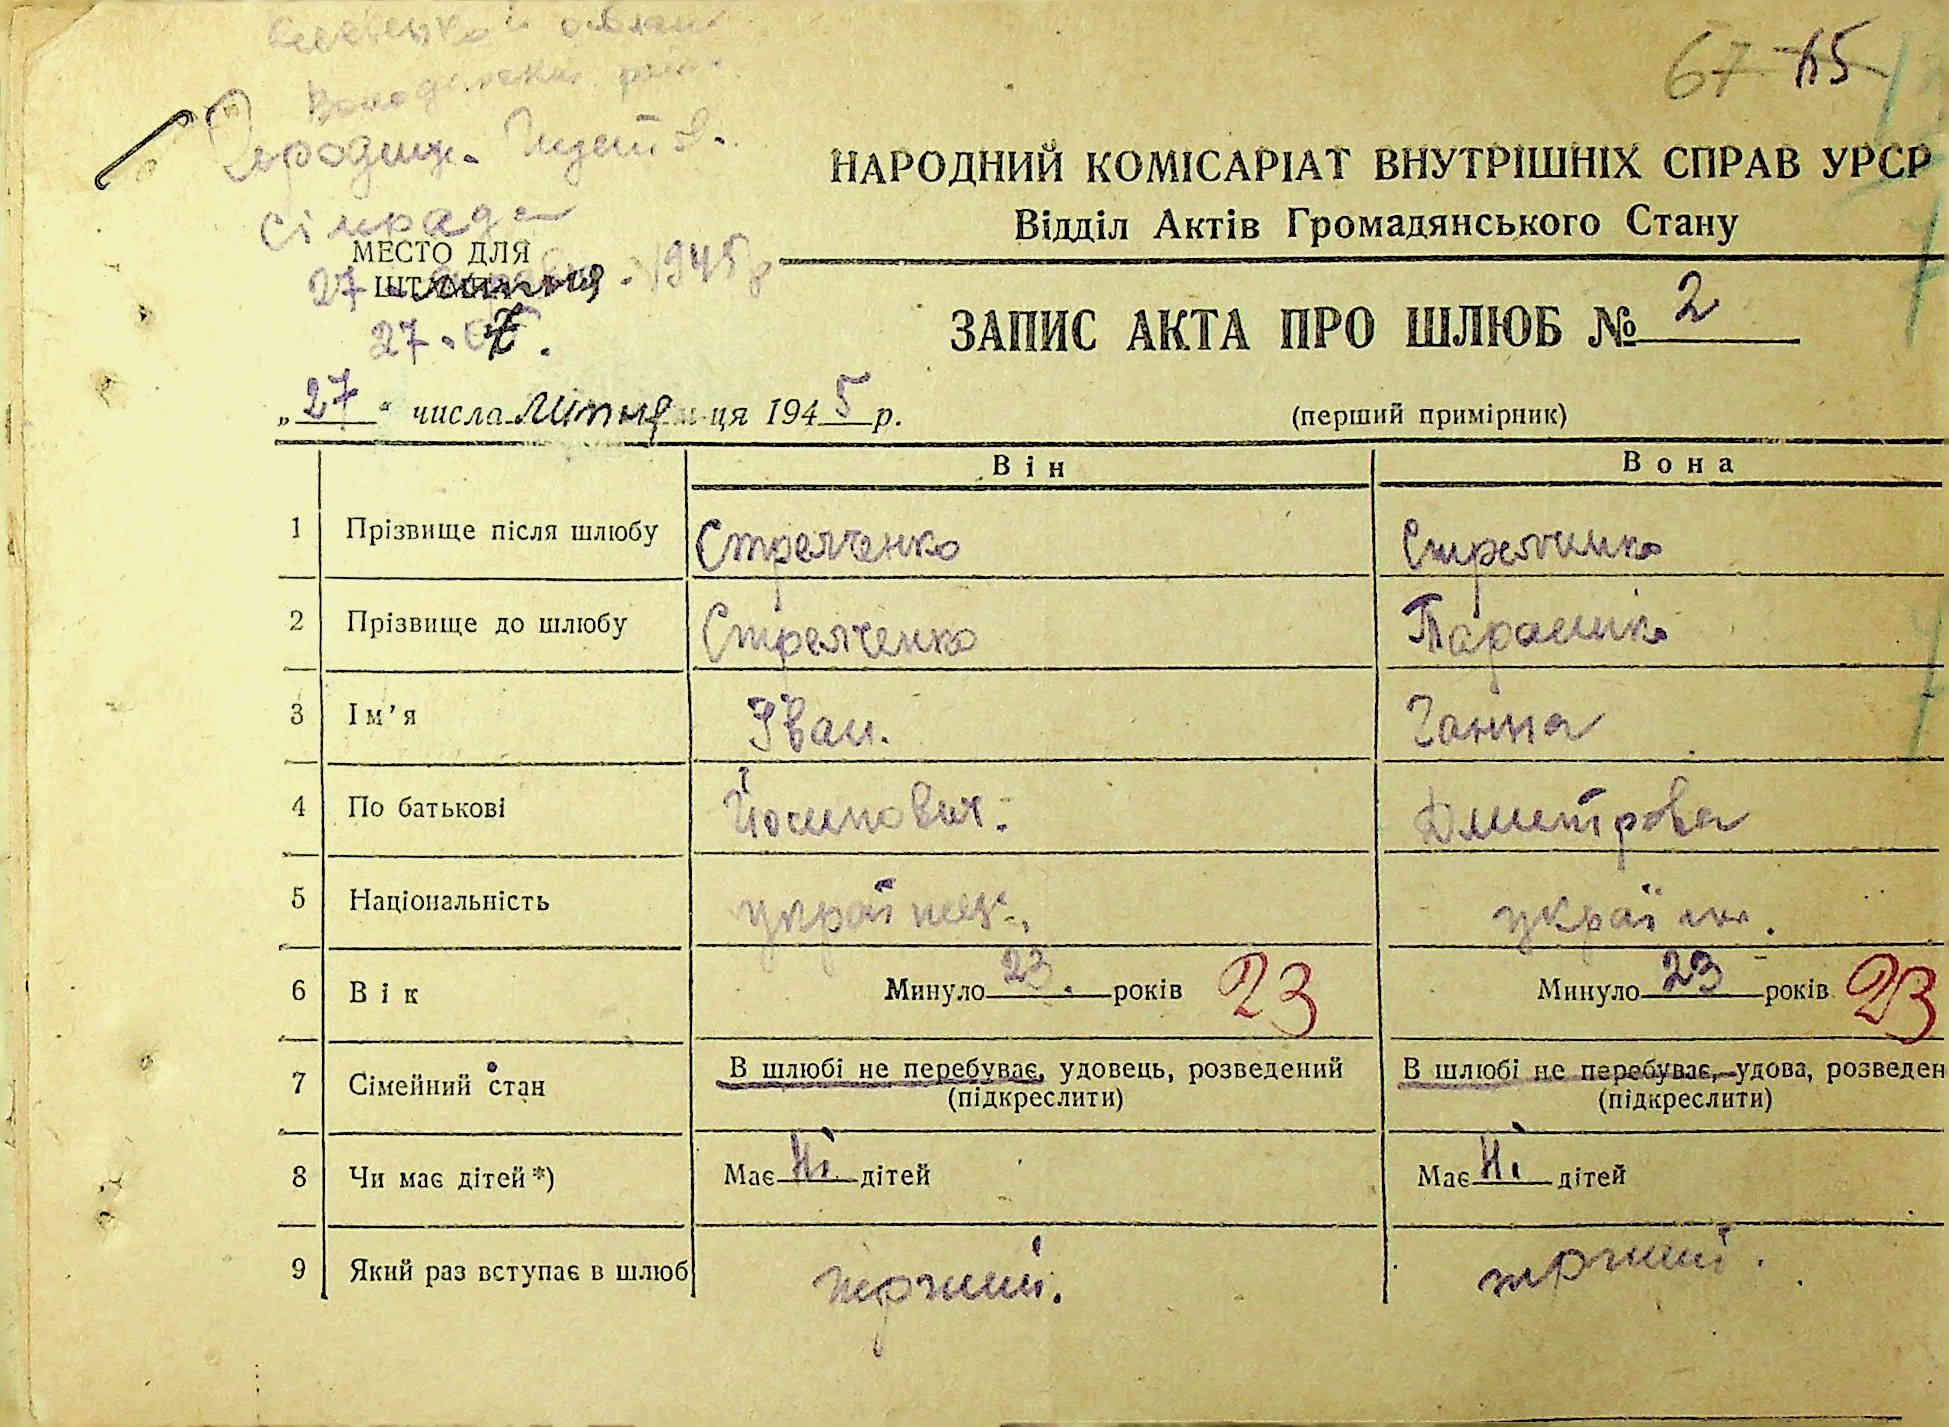 67 65
НАРОДНИЙ КОМІСАРІАТ ВНУТРІШНІХ СПРАВ УРСР
Відділ Актів Громадянського Стану
сільрада
МЕСТО ДЛЯ
27 1945 р
27
ЗАПИС АКТА ПРО ШЛЮБ № 2
„27“ числа липня м-ця 1945 р.
(перший примірник)
Він Вона
1 Прізвище після шлюбу Стрелченко Стрелченко
2 Прізвище до шлюбу Стрелченко
3 Ім'я Іван. Ганна
4 По батькові Йосипович. Дмитрова
5 Національність українець. україн.
6 Вік Минуло 23. років 23 Минуло 23 років 23
7 Сімейний стан В шлюбі не перебуває, удовець, розведений В шлюбі не перебуває, удова, розведен
(підкреслити) (підкреслити)
8 Чи має дітей*) Має Ні дітей Має Ні дітей
9 Який раз вступає в шлюб перший. перший.